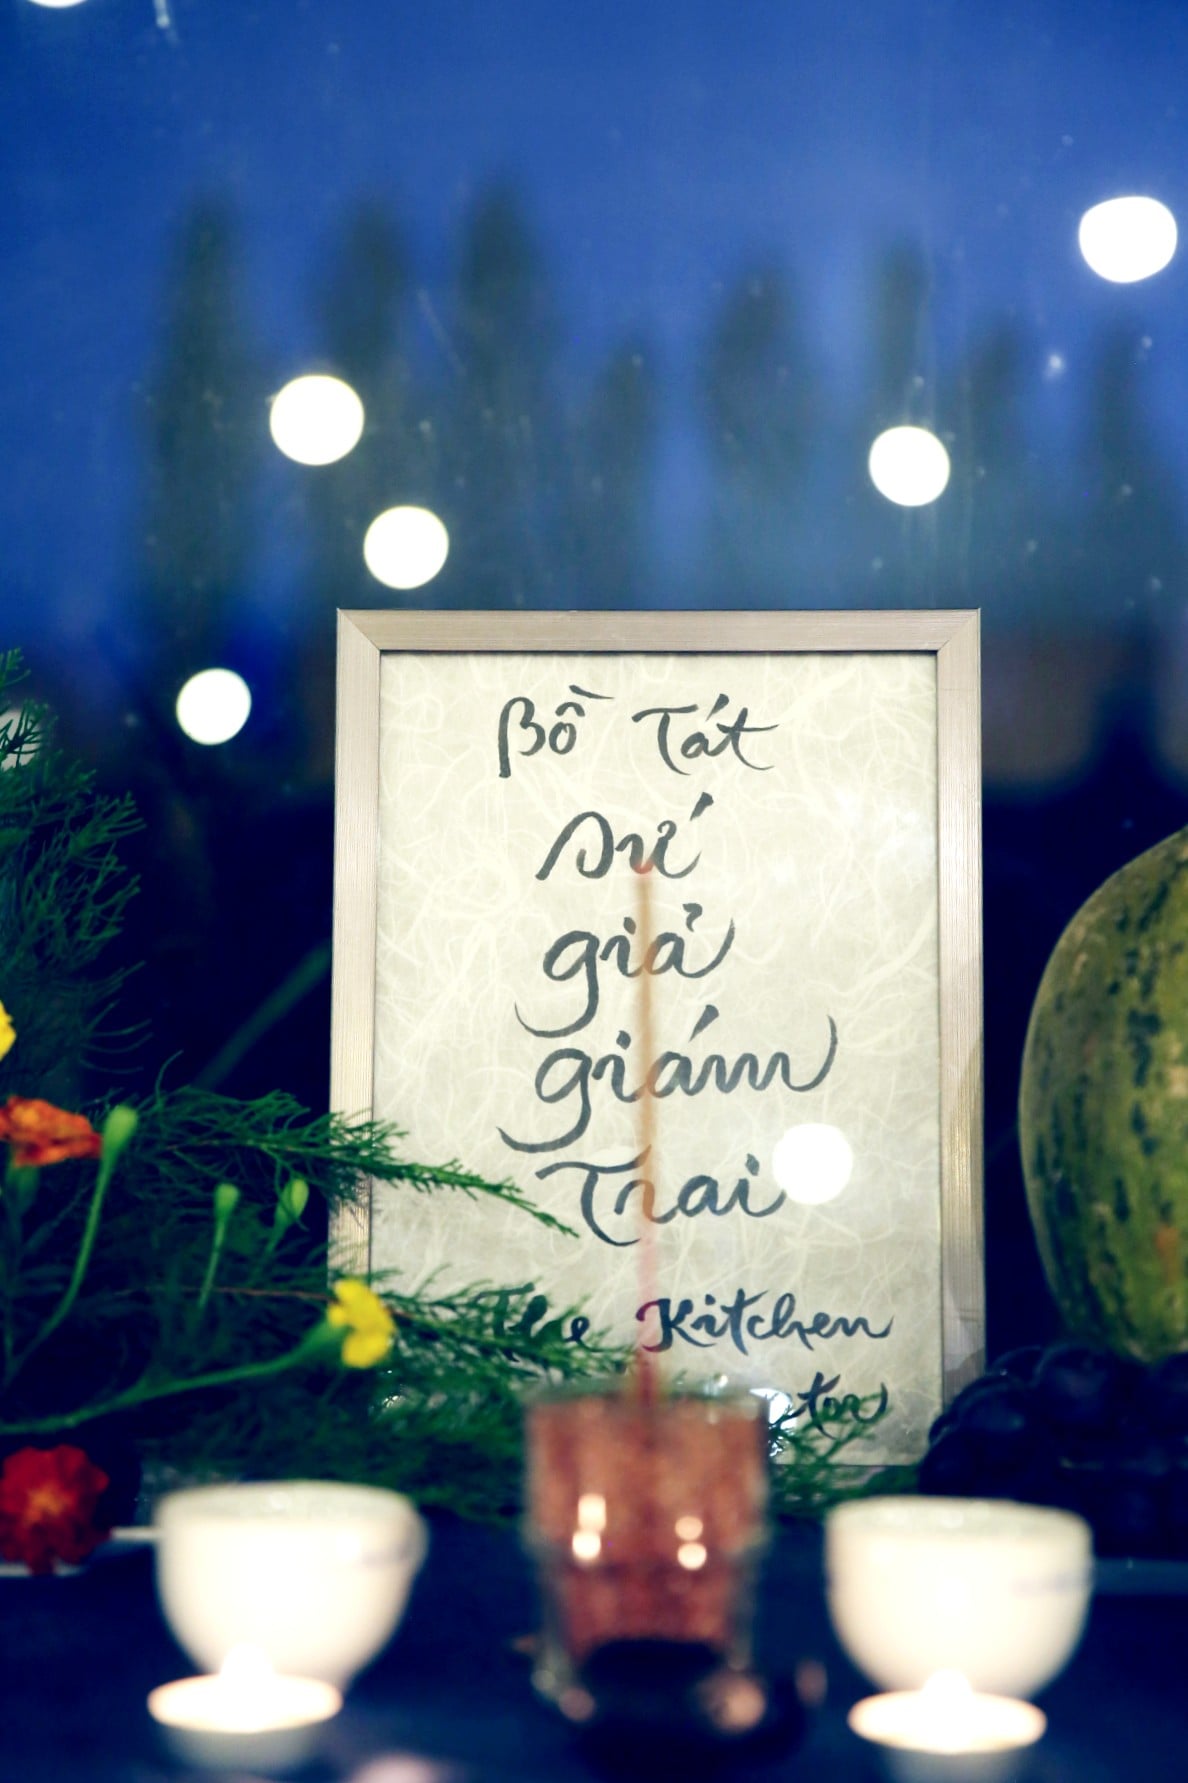 Bồ Tát
sứ
giả
giám
Trai
The Kitchen